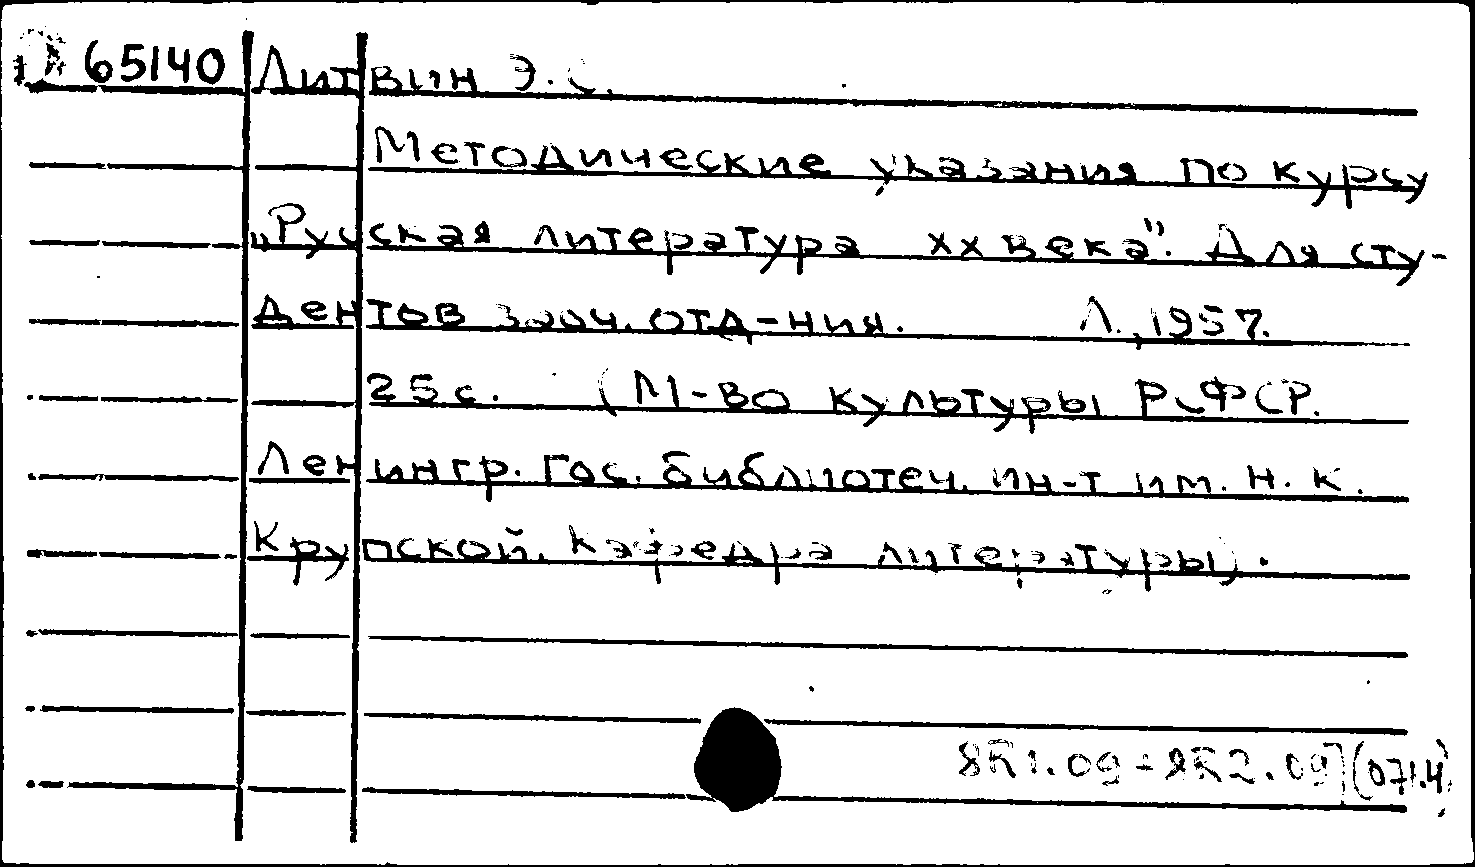 65140 Литвин Э.С.
Методические указания по курсу
„Русская литература XX века". Для сту-
дентов заоч. отд-ния. Л., 1957.
25с. (М-во культуры РСФСР.
Ленингр. гос. библиотеч. ин-т им. Н. К.
Крупской. Кафедра литературы).
(071.4)